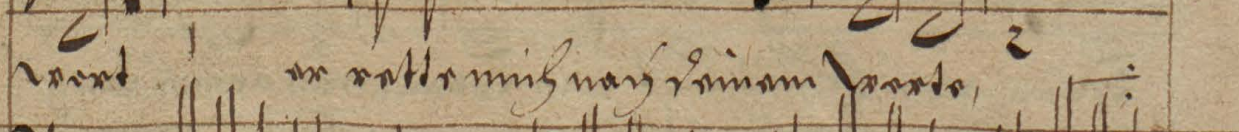 wort er rette mich nach deinem Worte,